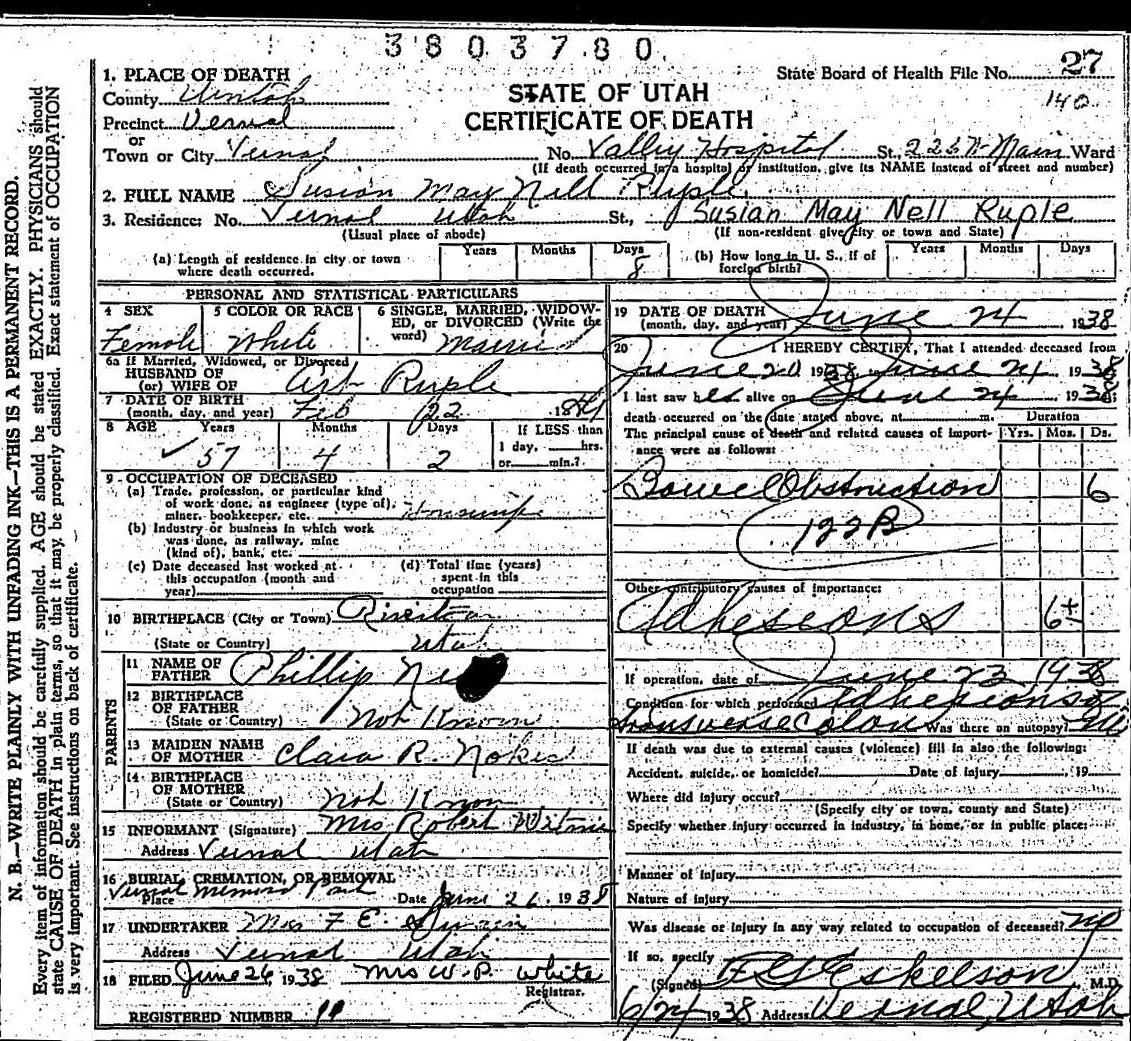 3803780
1. PLACE OF DEATH
State Board of Health File No. 27
County Uintah
STATE OF UTAH
140
Precinct Vernal
CERTIFICATE OF DEATH
or
Town or City Vernal No. Valley Hospital St., 226 N Main Ward
(If death occurred in a hospital or institution, give its NAME instead of street and number)
2. FULL NAME Susian May Nell Ruple
3. Residence: No. Vernal Utah St., Susian May Nell Ruple
(Usual place of abode) (If non-resident give city or town and State)
(a) Length of residence in city or town where death occurred. Years Months Days 8
(b) How long in U. S., if of foreign birth? Years Months Days
PERSONAL AND STATISTICAL PARTICULARS
4 SEX 5 COLOR OR RACE 6 SINGLE, MARRIED, WIDOWED, or DIVORCED (Write the word)
Female White Married
6a If Married, Widowed, or Divorced
HUSBAND OF
(or) WIFE OF Art Ruple
7 DATE OF BIRTH
(month, day, and year) Feb 22
8 AGE Years Months Days If LESS than
1 day, hrs.
57 4 2 or min.?
9 OCCUPATION OF DECEASED
(a) Trade, profession, or particular kind
of work done, as engineer (type of),
miner, bookkeeper, etc. Housewife
(b) Industry or business in which work
was done, as railway, mine
(kind of), bank, etc.
(c) Date deceased last worked at
this occupation (month and
year)
(d) Total time (years)
spent in this
occupation
10 BIRTHPLACE (City or Town) Riverton
(State or Country) Utah
PARENTS
11 NAME OF
FATHER Phillip
12 BIRTHPLACE
OF FATHER
(State or Country) Not Known
13 MAIDEN NAME
OF MOTHER Clara R. Nokes
14 BIRTHPLACE
OF MOTHER
(State or Country) Not Known
15 INFORMANT (Signature) Mrs Robert
Address Vernal Utah
16 BURIAL, CREMATION, OR REMOVAL
Vernal Memorial Park
Place Date June 26, 1938
17 UNDERTAKER Mrs F E
Address Vernal Utah
18 FILED June 26, 1938 Mrs W. P. White
Registrar.
REGISTERED NUMBER 11
19 DATE OF DEATH
(month, day, and year) June 24 1938
20 I HEREBY CERTIFY, That I attended deceased from
June 20 1938, to June 24 1938
I last saw her alive on June 24 1938;
death occurred on the date stated above, at m.
The principal cause of death and related causes of importance were as follows:
Duration
Yrs. Mos. Ds.
Bowel Obstruction 6
122B
Other contributory causes of importance:
Adhesions 6±
If operation, date of June 23 1938
Condition for which performed Adhesions of
transverse Colon Was there an autopsy? No
If death was due to external causes (violence) fill in also the following:
Accident, suicide, or homicide? Date of injury , 19
Where did injury occur?
(Specify city or town, county and State)
Specify whether injury occurred in industry, in home, or in public place:
Manner of injury
Nature of injury
Was disease or injury in any way related to occupation of deceased? no
If so, specify
(Signed) Eskelson M.D.
6/24 1938 Address Vernal, Utah
N. B.—WRITE PLAINLY WITH UNFADING INK—THIS IS A PERMANENT RECORD.
Every item of information should be carefully supplied. AGE should be stated EXACTLY. PHYSICIANS should
state CAUSE OF DEATH in plain terms, so that it may be properly classified. Exact statement of OCCUPATION
is very important. See instructions on back of certificate.